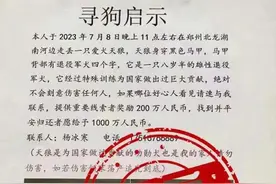 寻狗启示
本人于 2023 年 7 月 8 日晚上 11 点左右在郑州北龙湖
南河边走丢一只爱犬天狼，天狼身穿黑色马甲，马甲
背部有退役军犬四个字，它是一只八岁半的雄性退役
军犬，它经过特殊训练为国家做出过巨大贡献，绝对
不会刻意伤害任何人，如果哪位好心人看见请速与我
联系，提供重要线索者奖励 200 万人民币，找到并平
安归还者愿给于 1000 万人民币。
联系人：杨冰寒 电话
（天狼是为国家做过贡献的功勋犬也是我的家人请勿
伤害，如若伤害